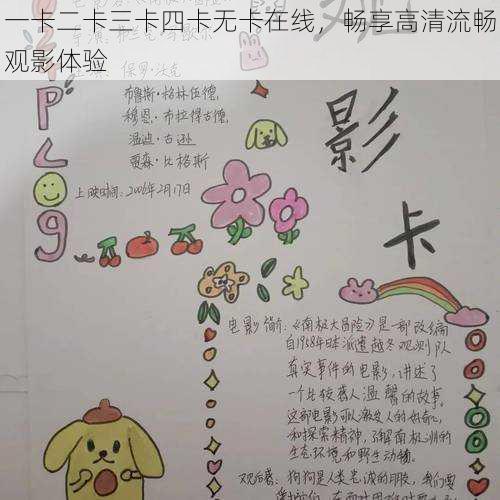 一卡二卡三卡四卡无卡在线，畅享高清流畅
观影体验
保罗·沃克
布鲁斯·格林伍德,
穆恩·布拉得古德,
温迪·古逊
贾森·比格斯
上映时间：2006年2月17日
P
L
O
g
影
卡
电影简介：《南极大冒险》是一部改编
自1958年日本派遣越冬观测队
真实事件的电影，讲述了
一个比较感人温馨的故事。
这部电影可以激发人的好奇心
和探索精神，了解南极洲的
生态环境和野生动物
观后感：狗狗是人类忠诚的朋友，我们要